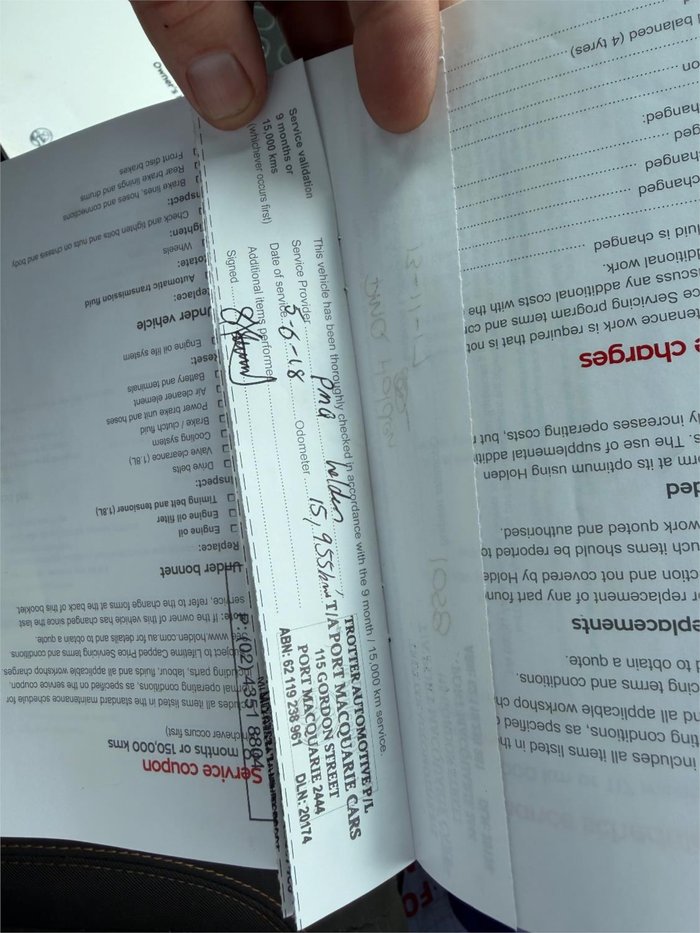 Service validation
9 months or
15,000 kms
(whichever occurs first)
This vehicle has been thoroughly checked in accordance with the 9 month / 15,000 km service.
Service Provider PMQ holden
Date of service 2-6-18 Odometer 15,955km
Additional items performed
Signed
TROTTER AUTOMOTIVE P/L
T/A PORT MACQUARIE CARS
115 GORDON STREET
PORT MACQUARIE 2444
ABN: 62 119 238 961 DLN: 20174
Owner's
Service coupon
months or 150,000 kms
(whichever occurs first)
P: (02) 4351 8804
cludes all items listed in the standard maintenance schedule for
rmal operating conditions, as specified on the service coupon,
cluding parts, labour, fluids and applicable workshop charges.
ubject to Lifetime Capped Price Servicing terms and conditions
www.holden.com.au for details and to obtain a quote.
ote: If the owner of this vehicle has changed since the last
service, refer to the change forms at the back of this booklet.
Under bonnet
Replace:
Engine oil
Engine oil filter
Timing belt and tensioner (1.8L)
Inspect:
Drive belts
Valve clearance (1.8L)
Cooling system
Brake / clutch fluid
Power brake unit and hoses
Air cleaner element
Battery and terminals
Reset:
Engine oil life system
Under vehicle
Replace:
Automatic transmission fluid
otate:
Wheels
ighten:
Check and tighten bolts and nuts on chassis and body
spect:
Brake lines, hoses and connections
Rear brake linings and drums
Front disc brakes
includes all items listed in the
ting conditions, as specified
d all applicable workshop ch
cing terms and conditions.
d to obtain a quote.
eplacements
or replacement of any part foun
ction and not covered by Holde
uch items should be reported to
work quoted and authorised.
ded
orm at its optimum using Holden
s. The use of supplemental additi
ly increases operating costs, but
e charges
tenance work is required that is not
ce Servicing program terms and con
scuss any additional costs with the
dditional work.
luid is changed
changed
changed
ged
hanged:
on
balanced (4 tyres)